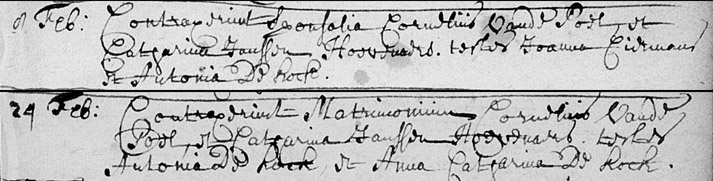 8 Feb: Contraxerunt Sponsalia Cornelius Vande Poel, et
Catharina Janssen Hoevenaers. testes Joanna Ciermans
et Antonia De Kock.
24 Feb: Contraxerunt Matrimonium Cornelius Vande
Poel, et Catharina Janssen Hoevenaers. testes
Antonia De Kock, et Anna Catharina De Kock.